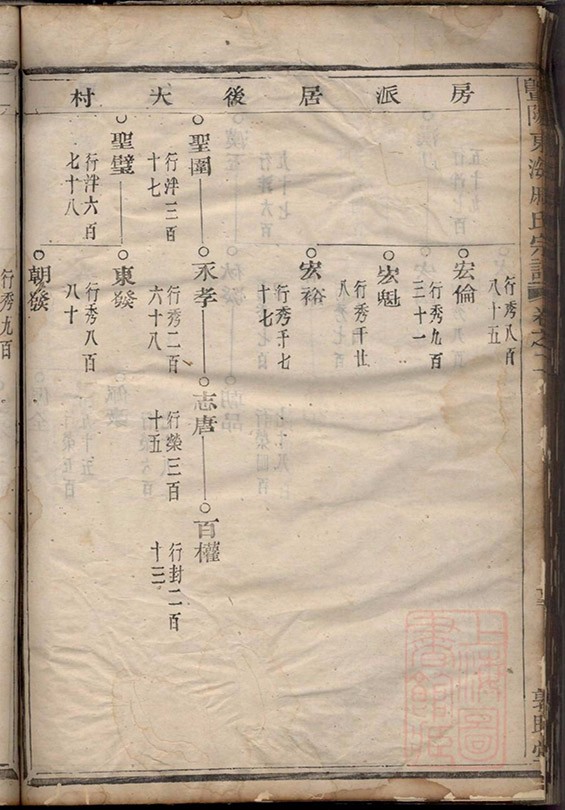 房派居後大村
行秀八百
八十五
宏倫
行秀九百
三十一
宏魁
行秀千廿
宏裕
行秀千七
十七
聖圍
行泮三百
十七
永孝
行秀二百
六十八
志唐
行榮三百
十五
百權
行封二百
十三
聖璧
行泮六百
七十八
東發
行秀八百
八十
朝發
行秀九百
暨陽東海
氏宗譜
卷之